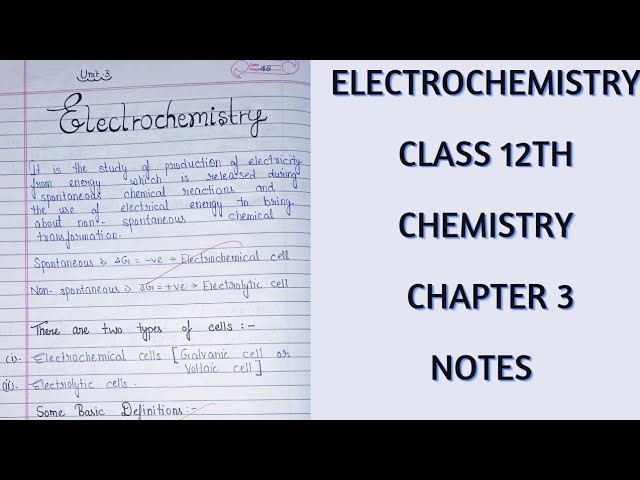 Unit 3
48
Electrochemistry
It is the study of production of electricity
from energy which is released during
spontaneous chemical reactions and
the use of electrical energy to bring
about non- spontaneous chemical
transformation.
Spontaneous ⇒ ΔG = -ve → Electrochemical cell
Non- spontaneous ⇒ ΔG = +ve → Electrolytic cell
There are two types of cells :-
(i)- Electrochemical cells [Galvanic cell or
Voltaic cell]
(ii)- Electrolytic cells.
Some Basic Definitions:-
ELECTROCHEMISTRY
CLASS 12TH
CHEMISTRY
CHAPTER 3
NOTES